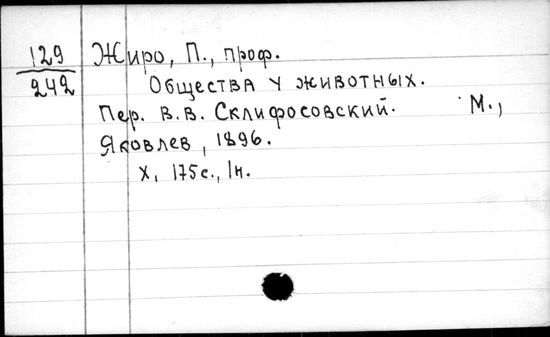 129
242
Жиро, П., проф.
Общества у животных.
Пер. В.В. Склифосовский. М.,
Яковлев, 1896.
X, 175с., 1н.